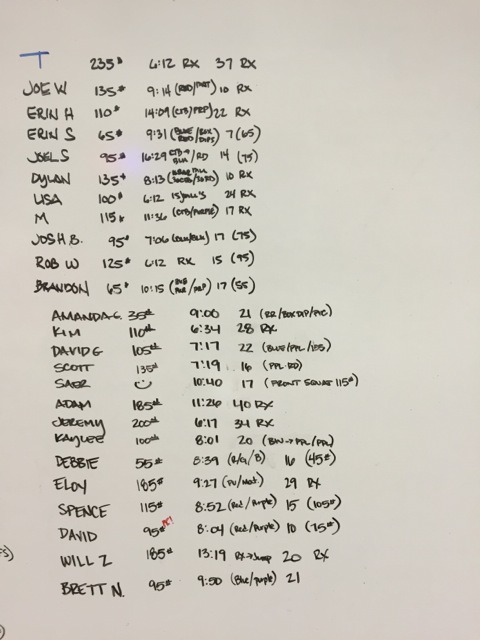 T 235# 6:12 RX 37 RX
JOE W 135# 9:14 (RED/PART) 10 RX
ERIN H 110# 14:09 (CTB/PRP) 22 RX
ERIN S 65# 9:31 (BLUE/BOX RED/DIPS) 7 (65)
JOEL S 95# 16:29 CTB→ BLU/RD 14 (75)
DYLAN 135# 8:13 10 RX
LISA 100# 6:12 24 RX
M 115# 11:36 (CTB/PURPLE) 17 RX
JOSH B. 95# 7:06 (BLU/BLU) 17 (75)
ROB W 125# 6:12 RX 15 (95)
BRANDON 65# 10:15 17 (55)
AMANDA G. 35# 9:00 21 (RR/BOX DIP/PVC)
KIM 110# 6:34 28 RX
DAVID G 105# 7:17 22 (BLUE/PPL/155)
SCOTT 135# 7:19 16 (PPL-RD)
SAER 10:40 17 (FRONT SQUAT 115#)
ADAM 185# 11:26 40 RX
JEREMY 200# 6:17 34 RX
KAYLEE 100# 8:01 20 (BLU→PPL/PPL)
DEBBIE 55# 8:39 (R/G/B) 16 (45#)
ELOY 185# 9:27 (PU/Mod.) 29 RX
SPENCE 115# 8:52 (Red/Purple) 15 (105#)
DAVID 95# 8:04 (Red/Purple) 10 (75#)
WILL Z 185# 13:19 RX→Jump 20 RX
BRETT N. 95# 9:50 (Blue/Purple) 21